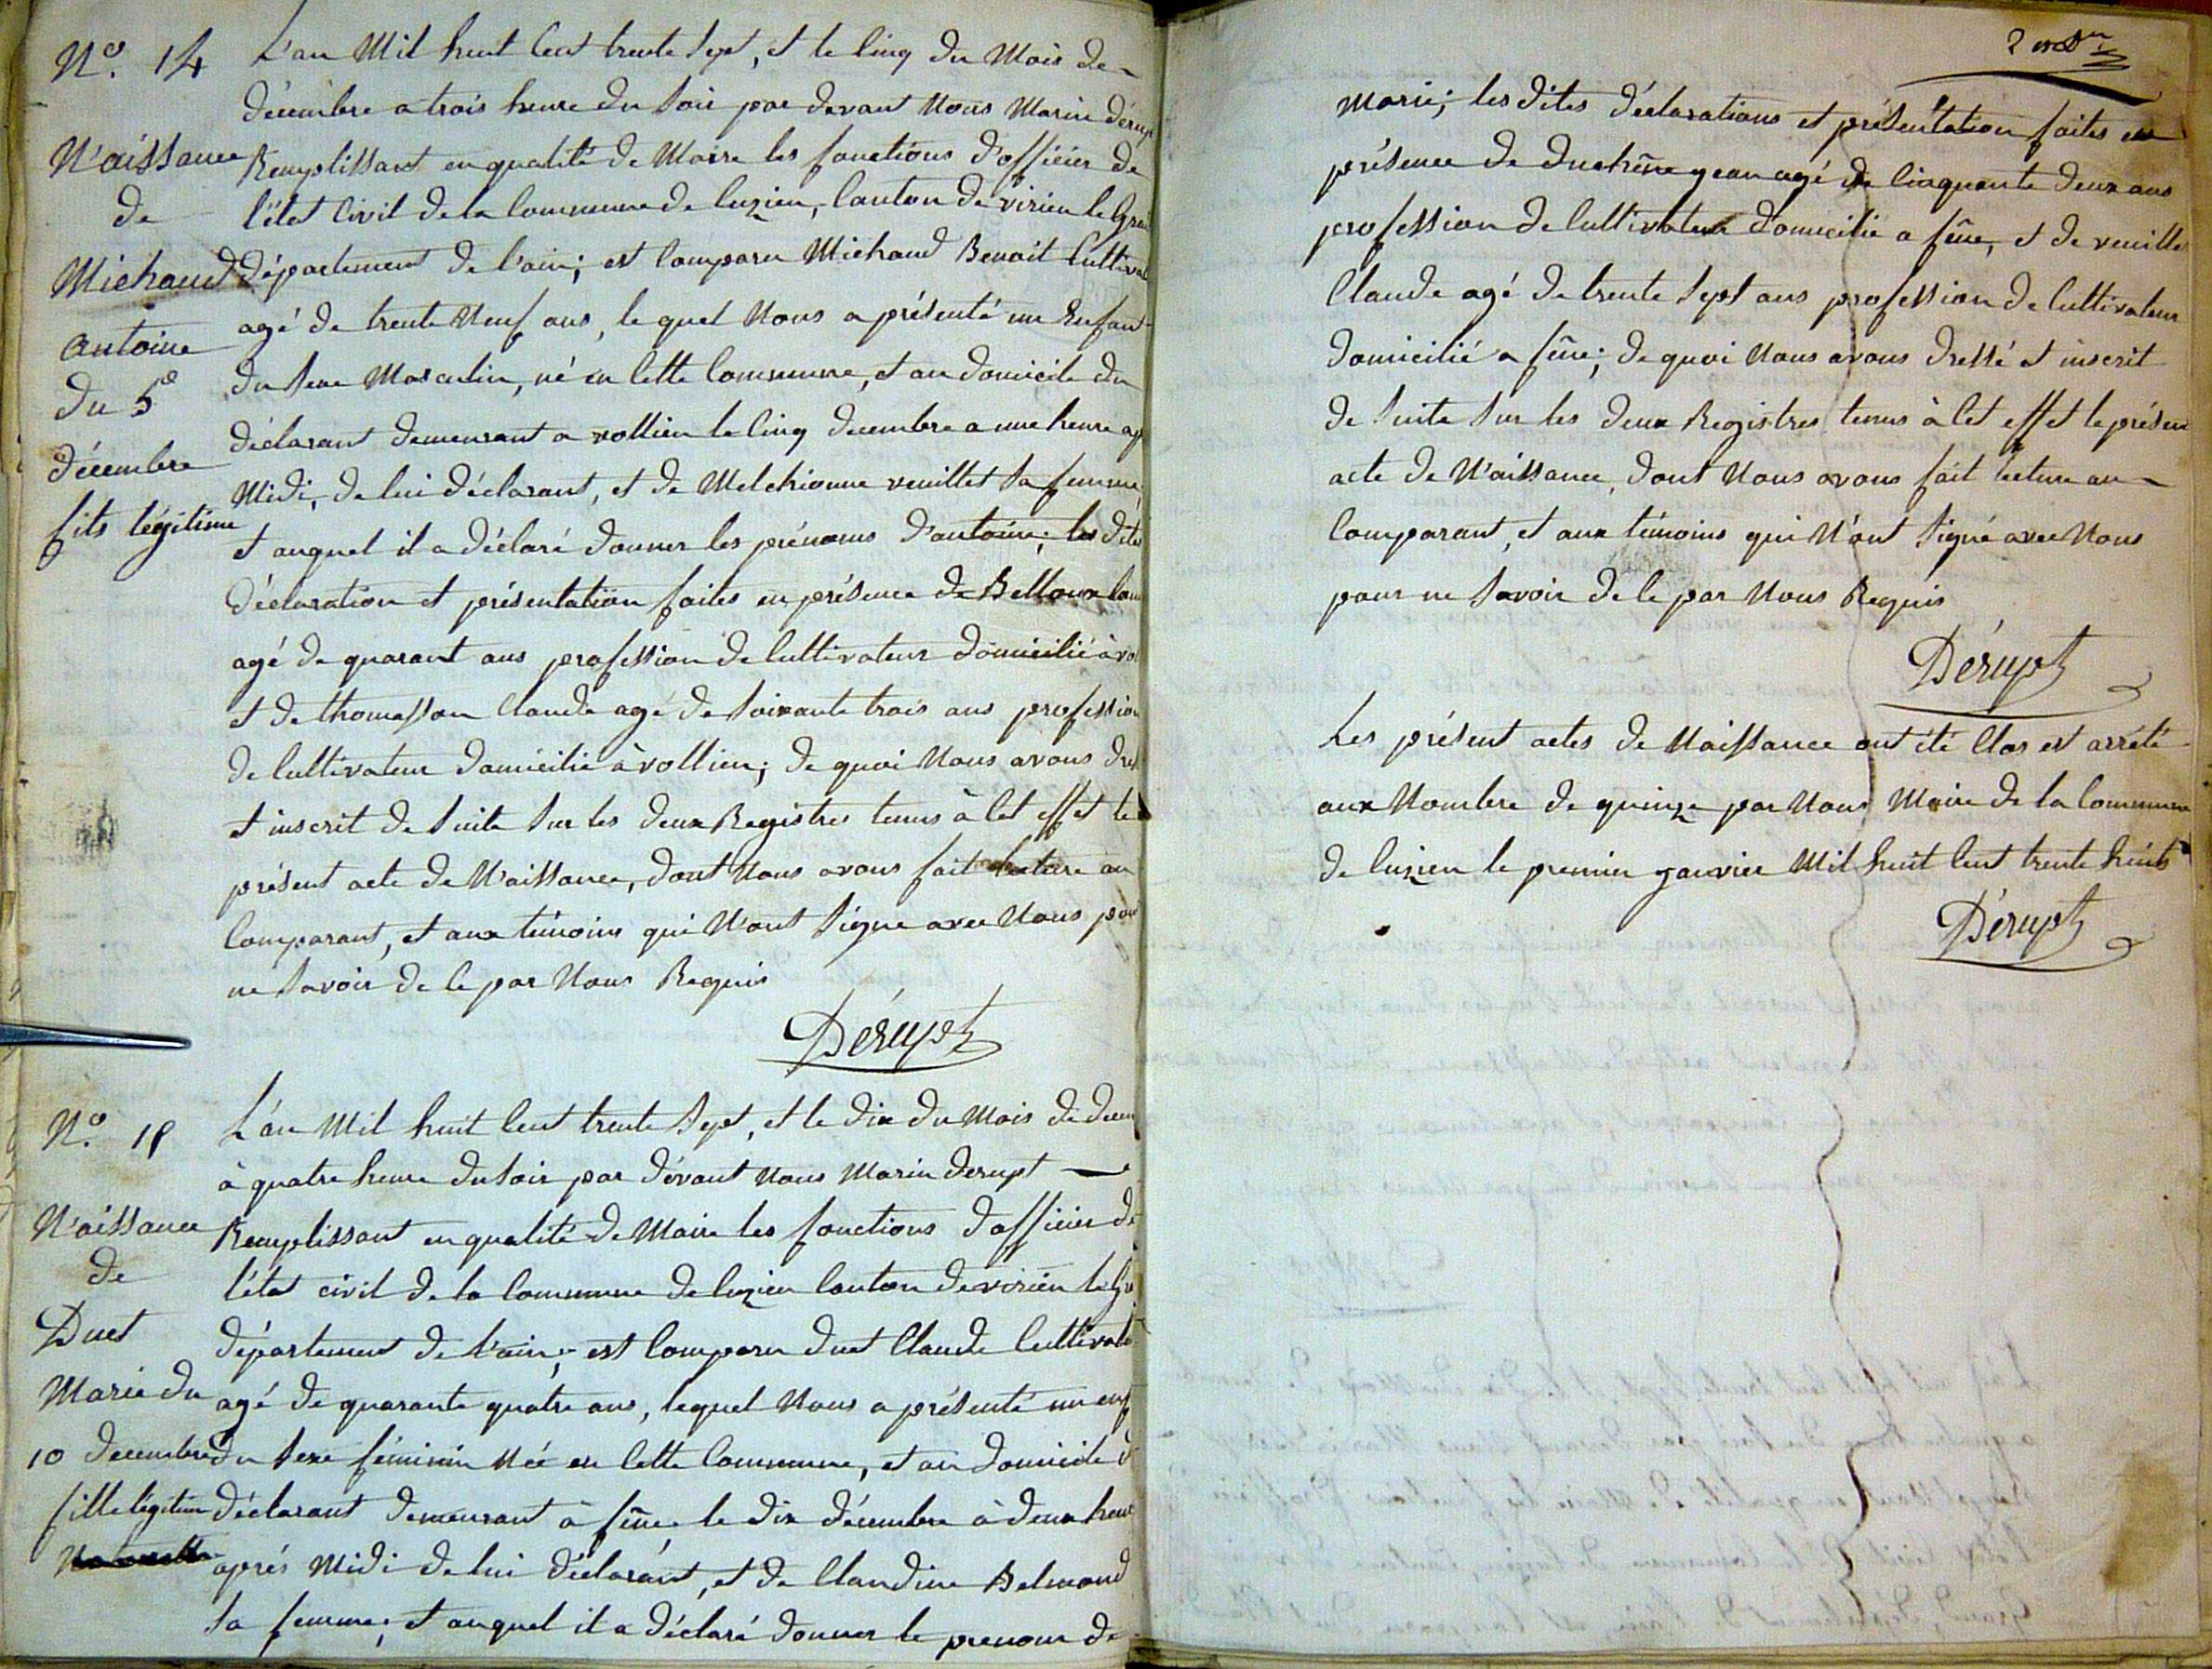 N.º 14
Naissance
de
Michaud
antoine
du 5e
décembre
fils légitime
L'an Mil huit Cent trente Sept, et le Cinq du Mois de
décembre a trois heure du Soir par devant Nous Marin dérup
Remplissant en qualité de Maire les fonctions d'officier de
l'état Civil de la Commune de Cuzieu, Canton de virieu le Gra
département de l'ain; est Comparu Michaud Benoit Cultiva
agé de trente Neuf ans, le quel Nous a présenté un Enfan
du Sexe Masculin, né en Cette Commune, et au domicile du
déclarant demeurant a vollien le Cinq decembre a une heure ap
Midi, de lui déclarant, et de Melchionne veuillet Sa femme
et auquel il a déclaré donner les prénoms d'antoine; les dites
déclaration et présentation faites en présence de Belloux
agé de quarant ans profession de Cultivateur domicilié à vo
et de thomasson Claude agé de Soixante trois ans profession
de Cultivateur domicilié à vollien; de quoi Nous avons dres
et inscrit de Suite Sur les deux Registres tenus à Cet effet le
présent acte de Naissance, dont Nous avons fait lecture au
Comparant, et aux témoins qui N'ont Signe avec Nous pour
ne Savoir de Ce par Nous Requis
Dérupt
N.º 15
Naissance
de
Duet
Marie du
10 decembre
fille légitime
L'an Mil huit Cent trente Sept, et le dix du Mois de decem
à quatre heure du Soir par dévant Nous Marin derupt
Remplissant en qualité de Maire les fonctions d'officier de
l'état civil de la Commune de Cuzieu Canton de virieu le Gr
département de l'ain; est Comparu duet Claude Cultivate
agé de quarante quatre ans, lequel Nous a présenté un enf
du Sexe féminin Née en Cette Commune, et au domicile d
déclarant demeurant à fême le dix décembre à deux heure
aprés Midi de lui déclarant, et de Claudine Belmond
Sa femme; et auquel il a déclaré donner le prenom de
Marie; les dites déclarations et présentation faites en
présence de duchêne jean agé de Cinquante deux ans
profession de Cultivateur domicilié a fême, et de veuillet
Claude agé de trente Sept ans profession de Cultivateur
domicilié a fême; de quoi Nous avons dressé et inscrit
de Suite Sur les deux Registres tenus à Cet effet le présent
acte de Naissance, dont Nous avons fait lecture au
Comparant, et aux témoins qui N'ont Signé avec Nous
pour ne Savoir de Ce par Nous Requis
Dérupt
Les présent actes de Naissance ont été Clos est arrété
aux Nombre de quinze par Nous Maire de la Commune
de Cuzieu le premier janvier Mil huit Cent trente huit
Dérupt